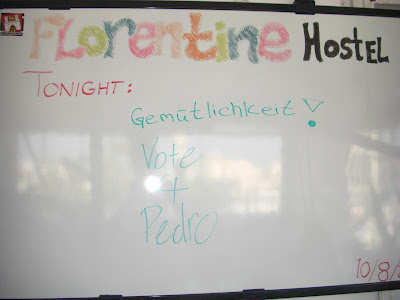 Florentine HOSTEL
TONIGHT:
Gemütlichkeit!
Vote
4
Pedro
10/8/